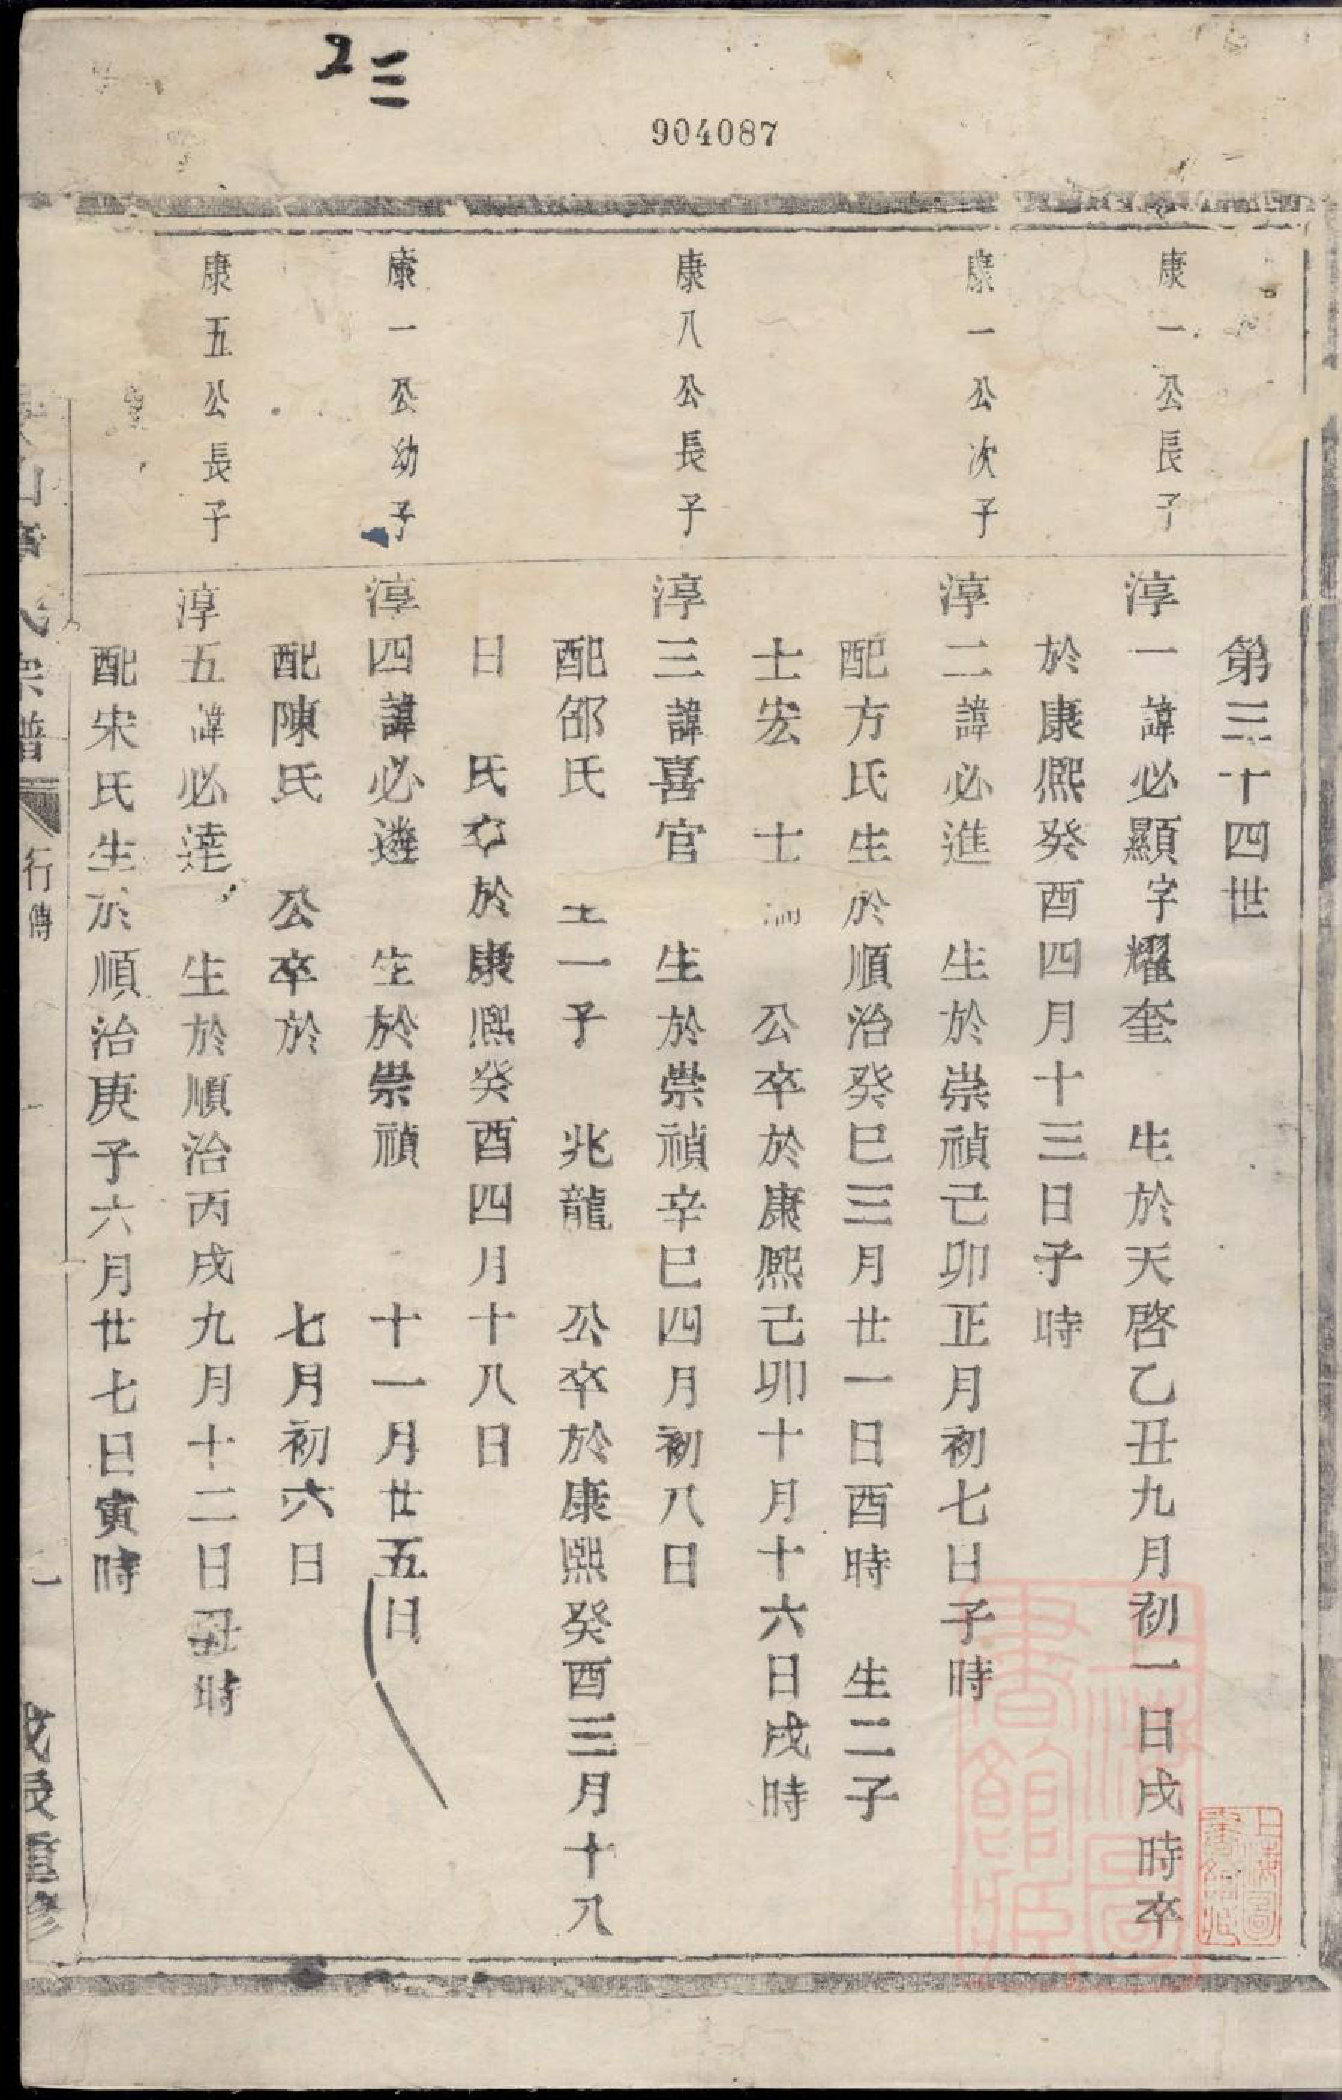 2三
904087
第三十四世
康一公長子
淳一諱必顯字耀奎 生於天啓乙丑九月初一日戌時卒
於康熙癸酉四月十三日子時
康一公次子
淳二諱必進 生於崇禎己卯正月初七日子時
配方氏生於順治癸巳三月廿一日酉時 生二子
士宏 士 公卒於康熙己卯十月十六日戌時
康八公長子
淳三諱喜官 生於崇禎辛巳四月初八日
配邵氏 一子 兆龍 公卒於康熙癸酉三月十八
日 氏卒於康熙癸酉四月十八日
康一公幼子
淳四諱必遴 生於崇禎 十一月廿五日
配陳氏 公卒於 七月初六日
康五公長子
淳五諱必達 生於順治丙戌九月十二日丑時
配宋氏生於順治庚子六月廿七日寅時
山 氏宗譜 行傳 一 重修
上海圖書館藏
上海圖書館藏